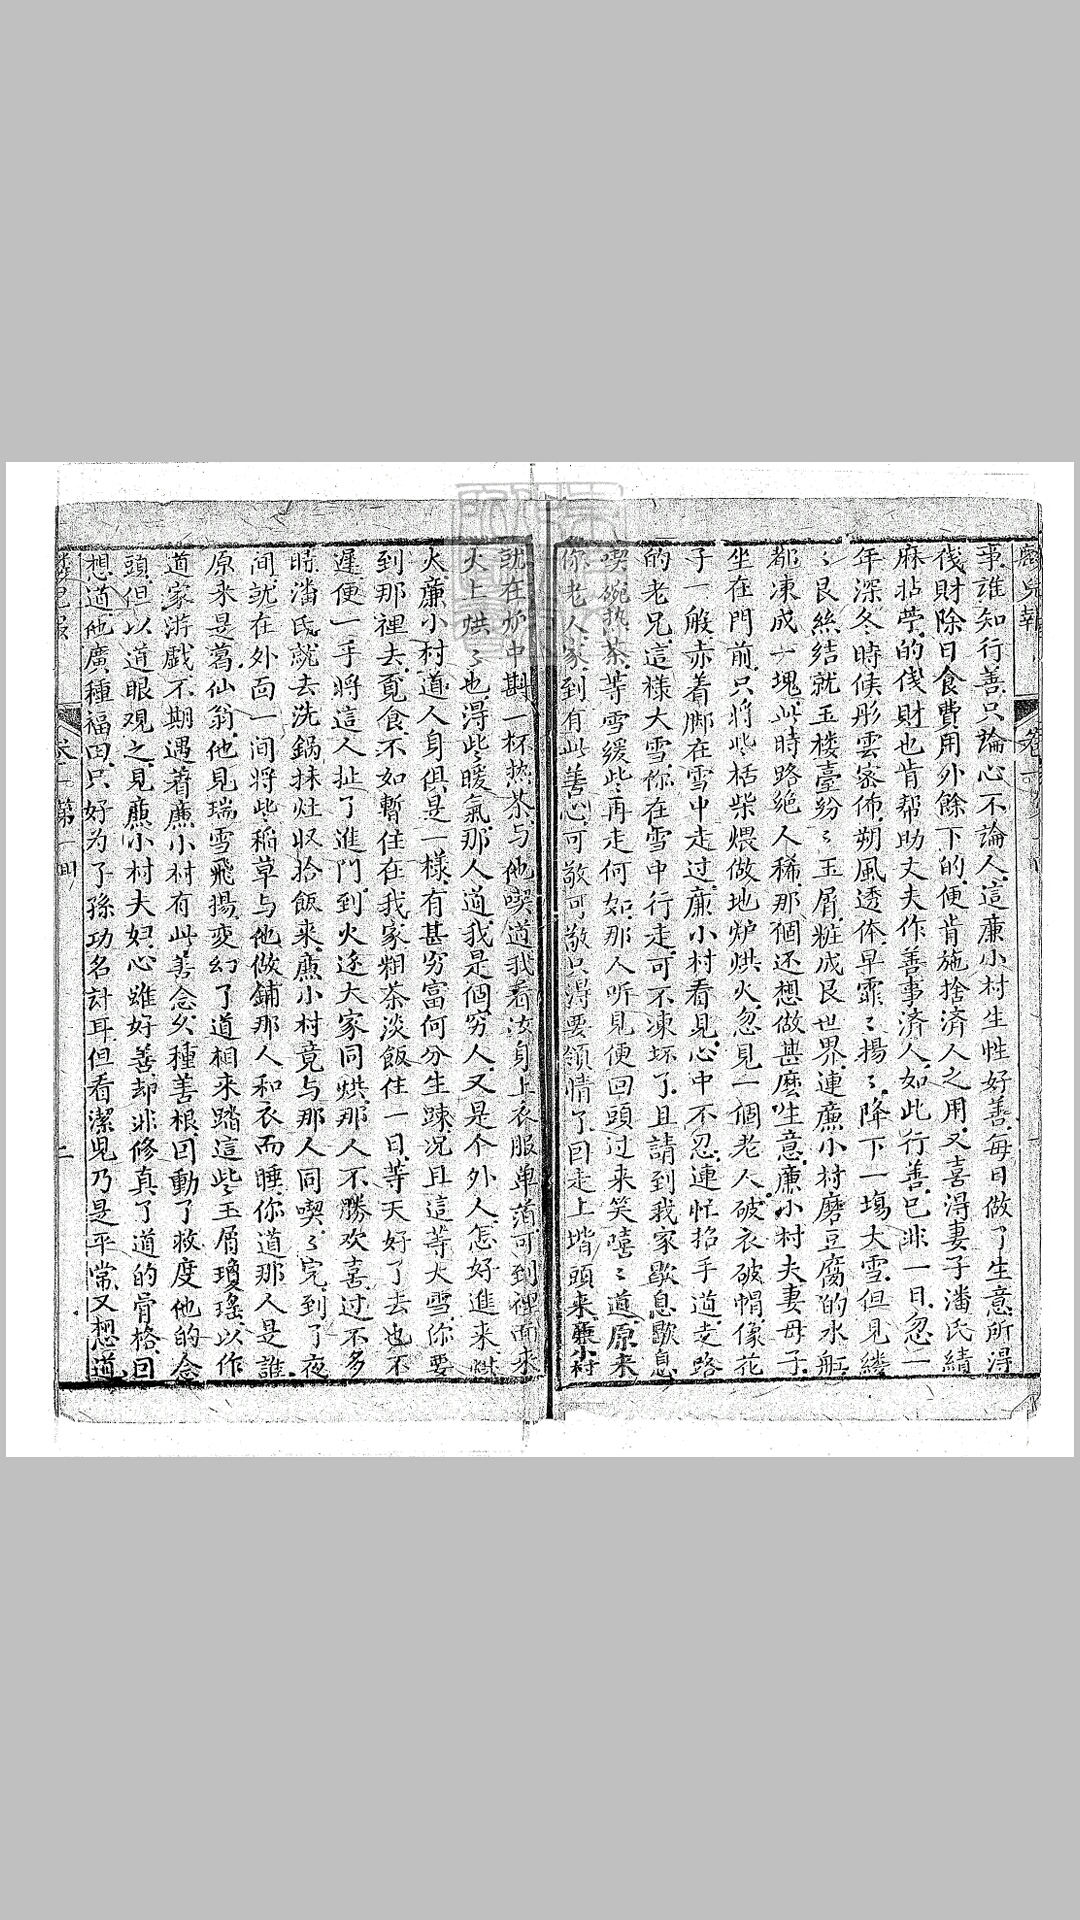 麟兒報
卷一
事.誰知行善.只論心不論人.這廉小村生性好善.每日做了生意.所淂
伐財.除日食費用外.餘下的.便肯施捨濟人之用.又喜淂妻子潘氏.績
麻拈苧.的伐財.也肯帮助丈夫.作善事済人.如此行善.已非一日.忽一
年深冬時候.彤雲密佈.朔風透体.早霏〻揚〻.降下一塲大雪.但見縷
〻艮絲結就玉楼臺.紛〻玉屑.粧成艮世界.連廉小村磨豆腐的水缸.
都凍成一塊.此時路絕人稀.那個还想做甚麽生意.廉小村夫妻母子.
坐在門前.只将些栝柴煨做地炉烘火.忽見一個老人.破衣破帽.像花
子一般.赤着脚.在雪中走过.廉小村看見.心中不忍.連忙招手道.走路
的老兄.這樣大雪.你在雪中行走.可不凍坏了.且請到我家歇息歇息.
喫碗热茶.等雪緩些.再走何如.那人听見.便回頭过来.笑嘻〻道.原来
你老人家.到有此善心.可敬可敬.只淂要領情了.囙走上堦頭来.廉小村
就在炉中.斟一杯热茶.与他喫道.我看汝身上衣服单萡.可到裡面来.
火上烘〻.也淂些暖氣.那人道.我是個窮人.又是个外人.怎好進来烘
火.廉小村道.人身俱是一樣.有甚穷富.何分生踈.况且這等大雪.你要
到那裡去覔食.不如暫住在我家.粗茶淡飯.住一日.等天好了去.也不
遲.便一手将這人扯了進門.到火边.大家同烘.那人不勝欢喜.过不多
時.潘氏就去洗鍋抹灶.収拾飯来.廉小村竟与那人同喫.〻完.到了夜
间.就在外面一间.将些稻草与他做鋪.那人和衣而睡.你道那人是誰.
原来是葛仙翁.他見瑞雪飛揚.变幻了道相.来踏這些玉屑瓊瑤.以作
道家游戲.不期遇着廉小村.有此善念.久種善根.囙動了救度他的念
頭.但以道眼观之.見廉小村夫妇.心雖好善.却非修真了道的骨格.囙
想道.他廣種福田.只好为了子孫功名計耳.但看潔児乃是平常.又想道
麟兒報
卷一第一回
二